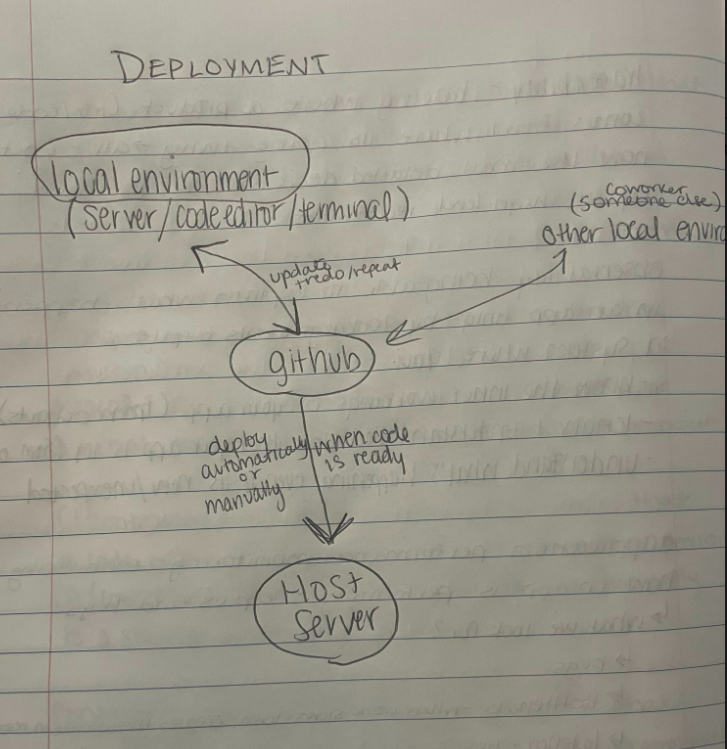 DEPLOYMENT
local environment
(server/code editor/terminal)
coworker
(someone else)
other local enviro
update
+redo/repeat
github
deploy
automatically
or
manually
when code
is ready
Host
Server